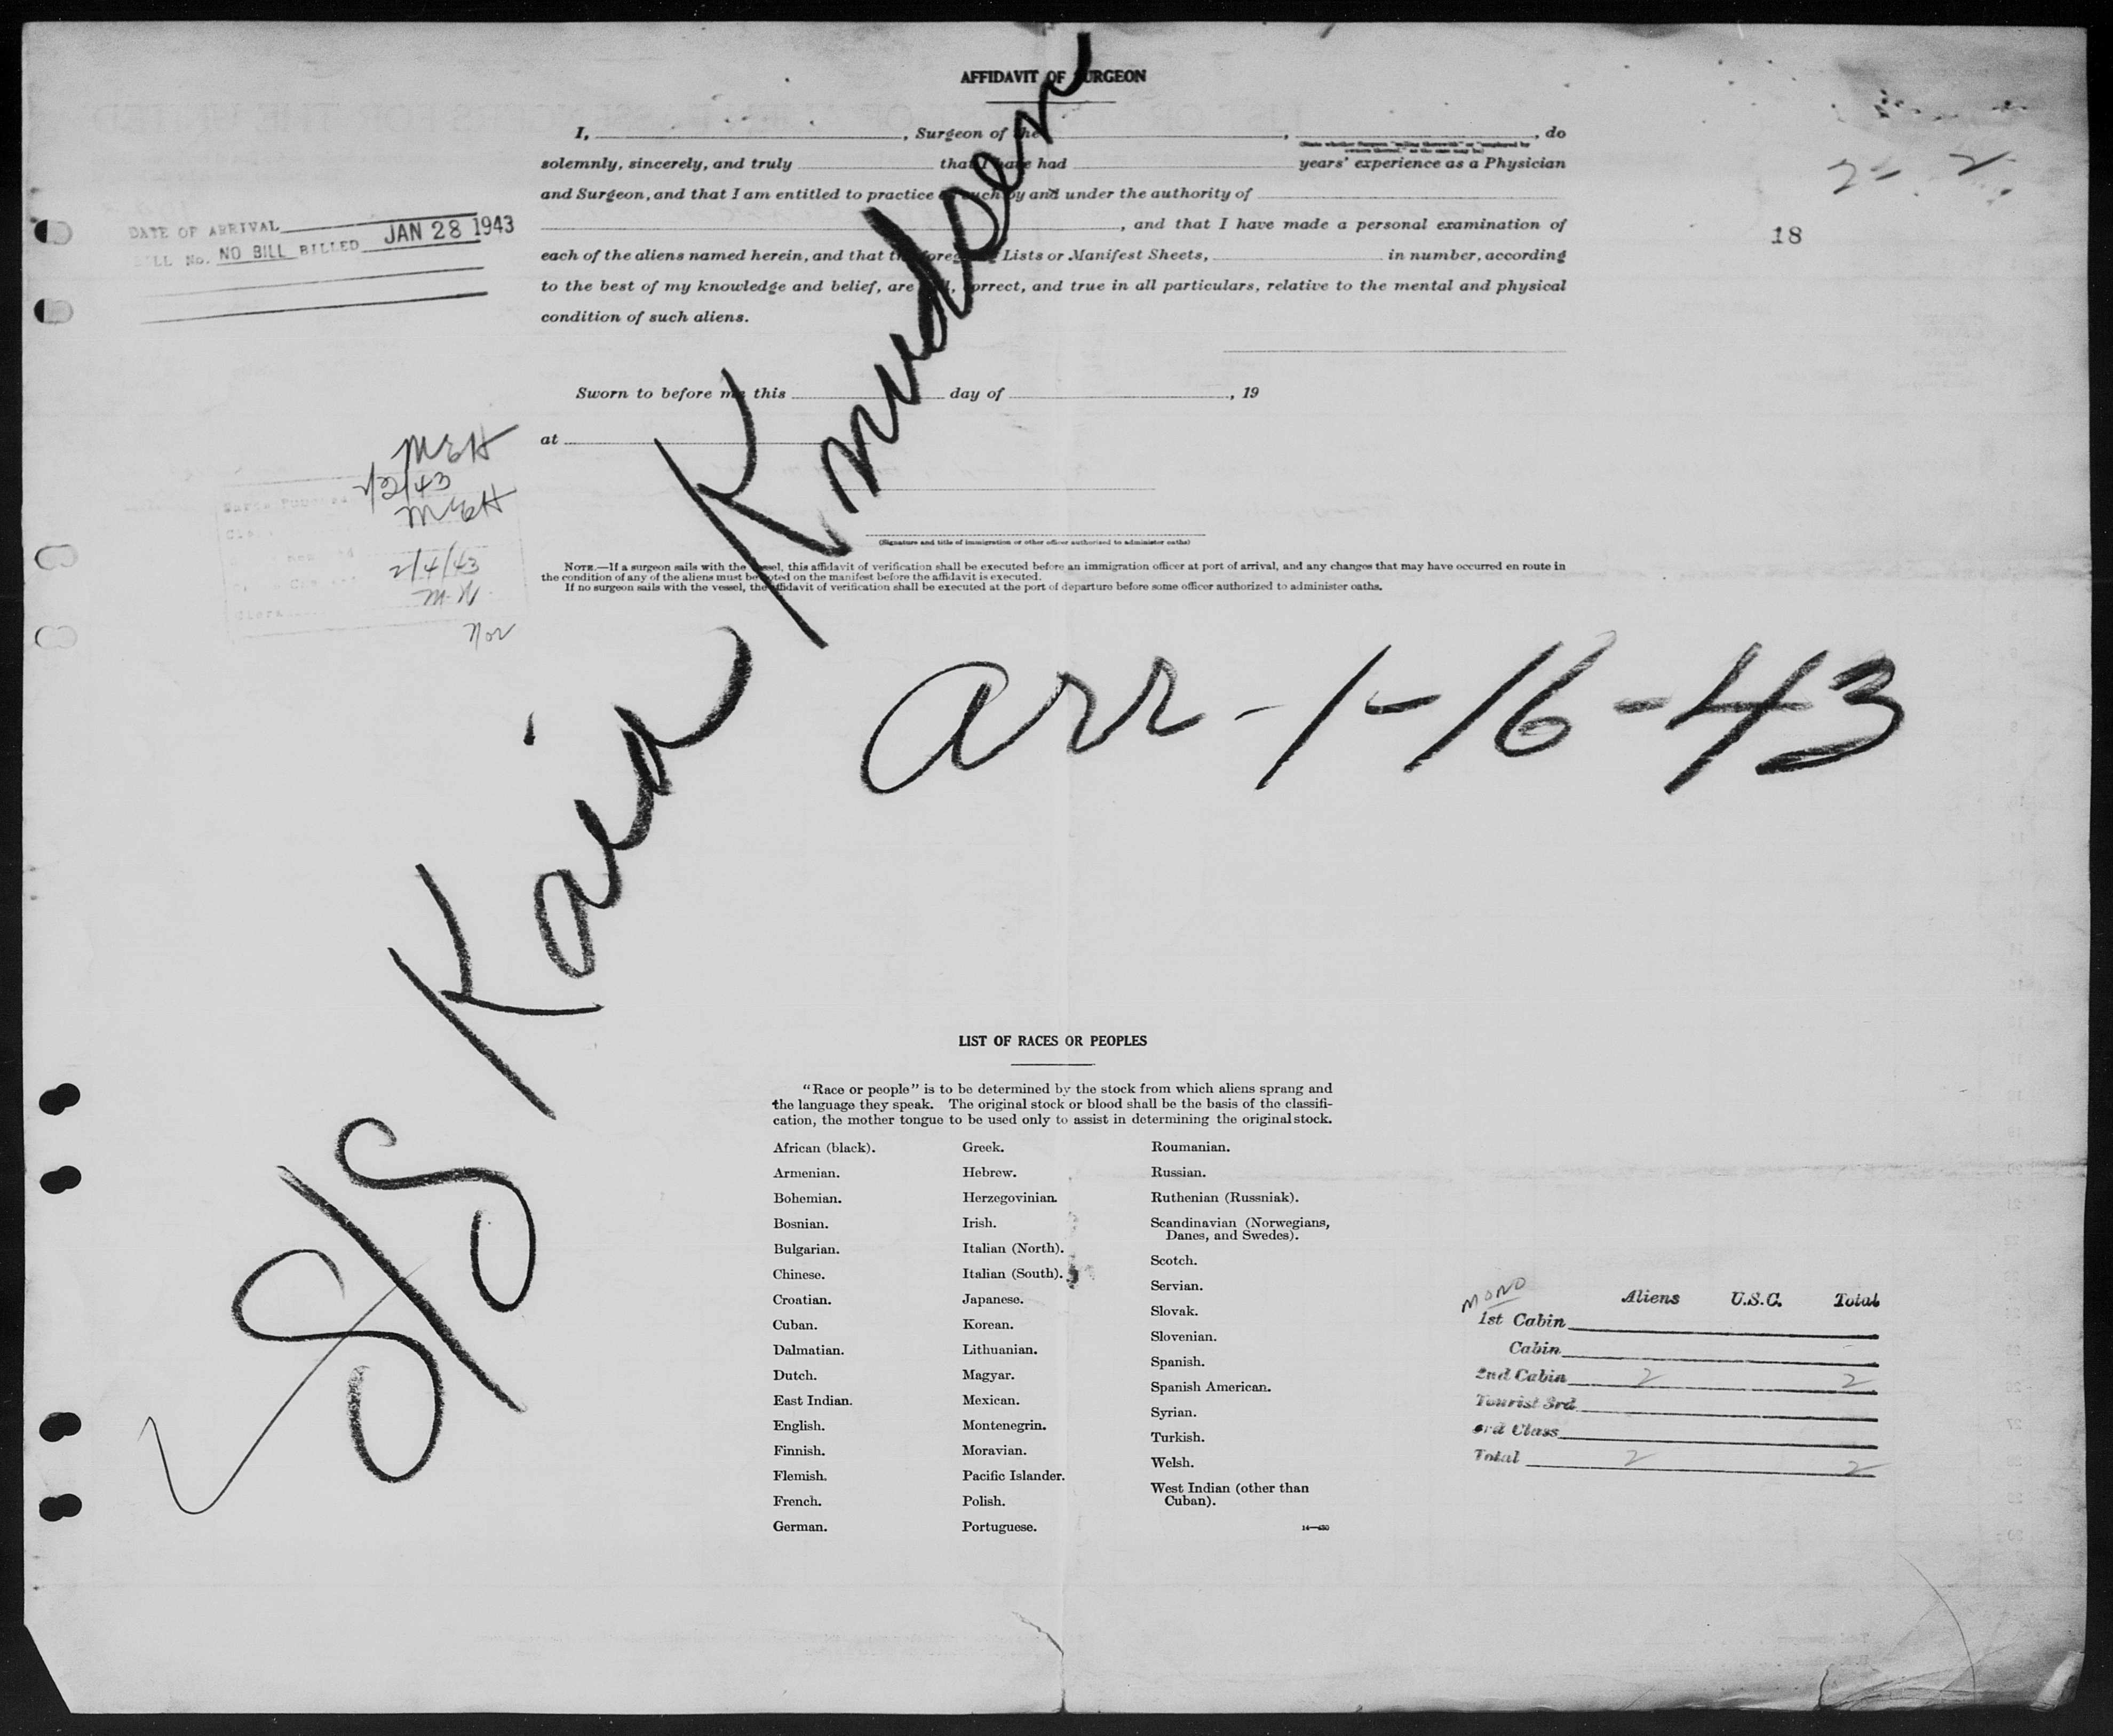 AFFIDAVIT OF SURGEON
I, , Surgeon of the , , do
solemnly, sincerely, and truly that I have had years' experience as a Physician
and Surgeon, and that I am entitled to practice as such by and under the authority of
, and that I have made a personal examination of
each of the aliens named herein, and that the foregoing Lists or Manifest Sheets, in number, according
to the best of my knowledge and belief, are full, correct, and true in all particulars, relative to the mental and physical
condition of such aliens.
Sworn to before me this day of , 19
at
(Signature and title of immigration or other officer authorized to administer oaths)
NOTE.—If a surgeon sails with the vessel, this affidavit of verification shall be executed before an immigration officer at port of arrival, and any changes that may have occurred en route in
the condition of any of the aliens must be noted on the manifest before the affidavit is executed.
If no surgeon sails with the vessel, the affidavit of verification shall be executed at the port of departure before some officer authorized to administer oaths.
2- 2
18
DATE OF ARRIVAL
BILL No. NO BILL BILLED JAN 28 1943
MEH
2/2/43
MEH
2/4/43
M.N.
Nor
S/S Karin Knudsen
arr-1-16-43
LIST OF RACES OR PEOPLES
"Race or people" is to be determined by the stock from which aliens sprang and
the language they speak. The original stock or blood shall be the basis of the classifi-
cation, the mother tongue to be used only to assist in determining the original stock.
African (black).
Armenian.
Bohemian.
Bosnian.
Bulgarian.
Chinese.
Croatian.
Cuban.
Dalmatian.
Dutch.
East Indian.
English.
Finnish.
Flemish.
French.
German.
Greek.
Hebrew.
Herzegovinian.
Irish.
Italian (North).
Italian (South).
Japanese.
Korean.
Lithuanian.
Magyar.
Mexican.
Montenegrin.
Moravian.
Pacific Islander.
Polish.
Portuguese.
Roumanian.
Russian.
Ruthenian (Russniak).
Scandinavian (Norwegians,
Danes, and Swedes).
Scotch.
Servian.
Slovak.
Slovenian.
Spanish.
Spanish American.
Syrian.
Turkish.
Welsh.
West Indian (other than
Cuban).
14—430
MONO
Aliens U.S.C. Total
1st Cabin
Cabin
2nd Cabin 2 2
Tourist 3rd
3rd Class
Total 2 2